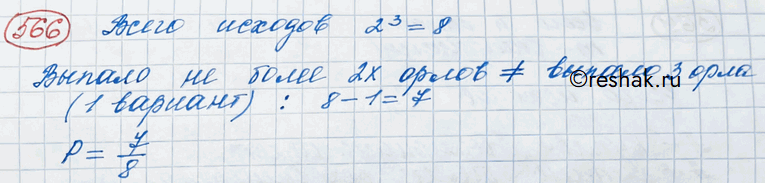 566 Всего исходов 2³ = 8
Выпало не более 2х орлов ≠ выпало 3 орла
©reshak.ru
(1 вариант) : 8 – 1 = 7
P = 7/8